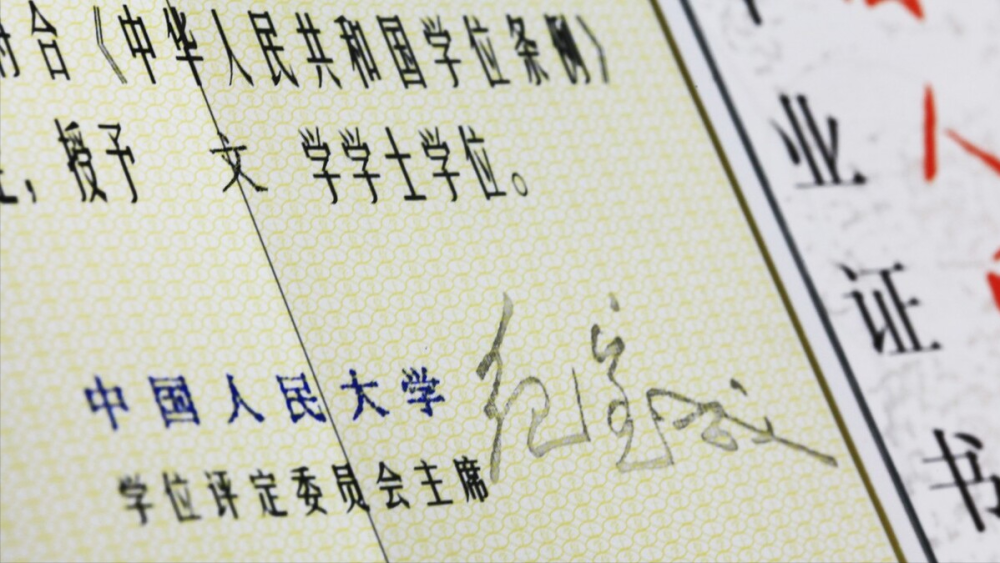 符合《中华人民共和国学位条例》
授予 文 学学士学位。
中国人民大学
学位评定委员会主席
业
证
书